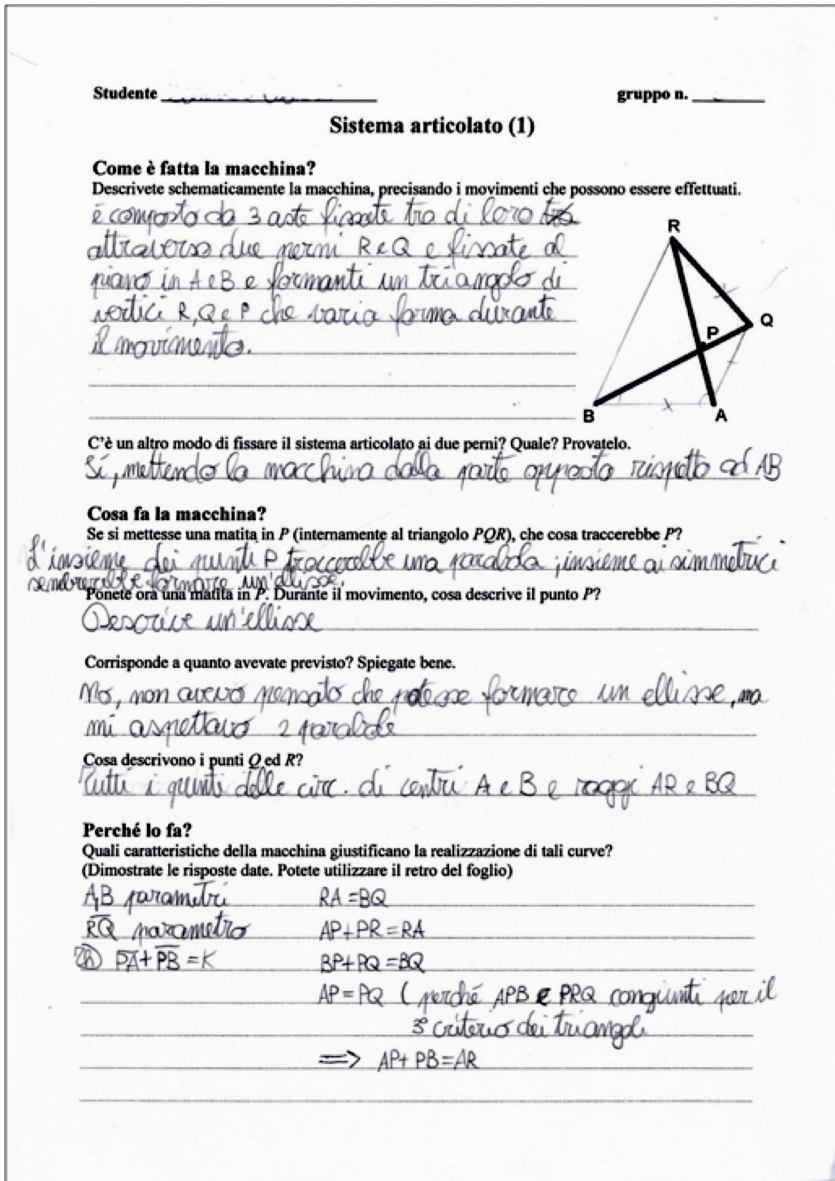 Studente
gruppo n.
Sistema articolato (1)
Come è fatta la macchina?
Descrivete schematicamente la macchina, precisando i movimenti che possono essere effettuati.
é composto da 3 aste fissate tra di loro
attraverso due perni R e Q e fissate al
piano in A e B e formanti un triangolo di
vertici R, Q e P che varia forma durante
il movimento.
R
Q
P
B
A
C'è un altro modo di fissare il sistema articolato ai due perni? Quale? Provatelo.
Sí, mettendo la macchina dalla parte opposta rispetto ad AB
Cosa fa la macchina?
Se si mettesse una matita in P (internamente al triangolo PQR), che cosa traccerebbe P?
L'insieme dei punti P traccerebbe una parabola; insieme ai simmetrici
sembrerebbe formare un'ellisse.
Ponete ora una matita in P. Durante il movimento, cosa descrive il punto P?
Descrive un'ellisse
Corrisponde a quanto avevate previsto? Spiegate bene.
No, non avevo pensato che potesse formare un ellisse, ma
mi aspettavo 2 parabole
Cosa descrivono i punti Q ed R?
Tutti i punti delle circ. di centri A e B e raggi AR e BQ
Perché lo fa?
Quali caratteristiche della macchina giustificano la realizzazione di tali curve?
(Dimostrate le risposte date. Potete utilizzare il retro del foglio)
A,B parametri RA = BQ
RQ parametro AP + PR = RA
Th PA + PB = K BP + PQ = BQ
AP = PQ ( perché APB e PRQ congiunti per il
3° criterio dei triangoli
=> AP + PB = AR